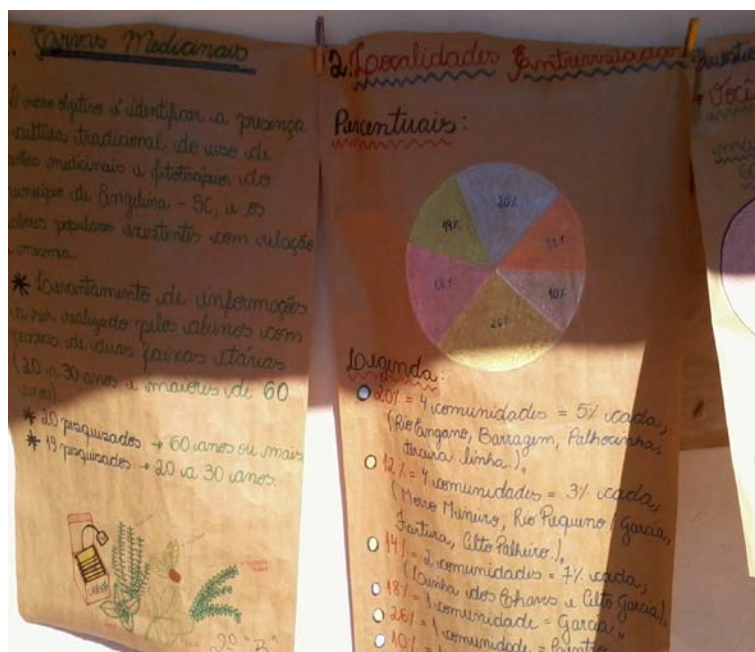 Ervas Medicinais
O nosso objetivo é identificar a presença
cultura tradicional do uso de
medicinais e fitoterápicos do
município de Angelina - SC, e os
populares existentes com relação
a mesma.
* Levantamento de informações
a ser realizado pelos alunos com
pessoas de duas faixas etárias
(20 a 30 anos e maiores de 60
anos)
* 20 pesquisados → 60 anos ou mais
* 19 pesquisados → 20 a 30 anos.
2º "B"
2. Localidades Entrevistadas
Percentuais:
20%
14%
12%
18%
10%
26%
Legenda:
20% = 4 comunidades = 5% cada,
(Rio Engano, Barragem, Palhocinha,
terceira linha).
12% = 4 comunidades = 3% cada,
(Morro Mineiro, Rio Pequeno/Garcia,
Fartura, Alto Palheiro).
14% = 2 comunidades = 7% cada,
(Linha dos Chaves e Alto Garcia)
18% = 1 comunidade = Garcia
26% = 1 comunidade = Centro
10% =